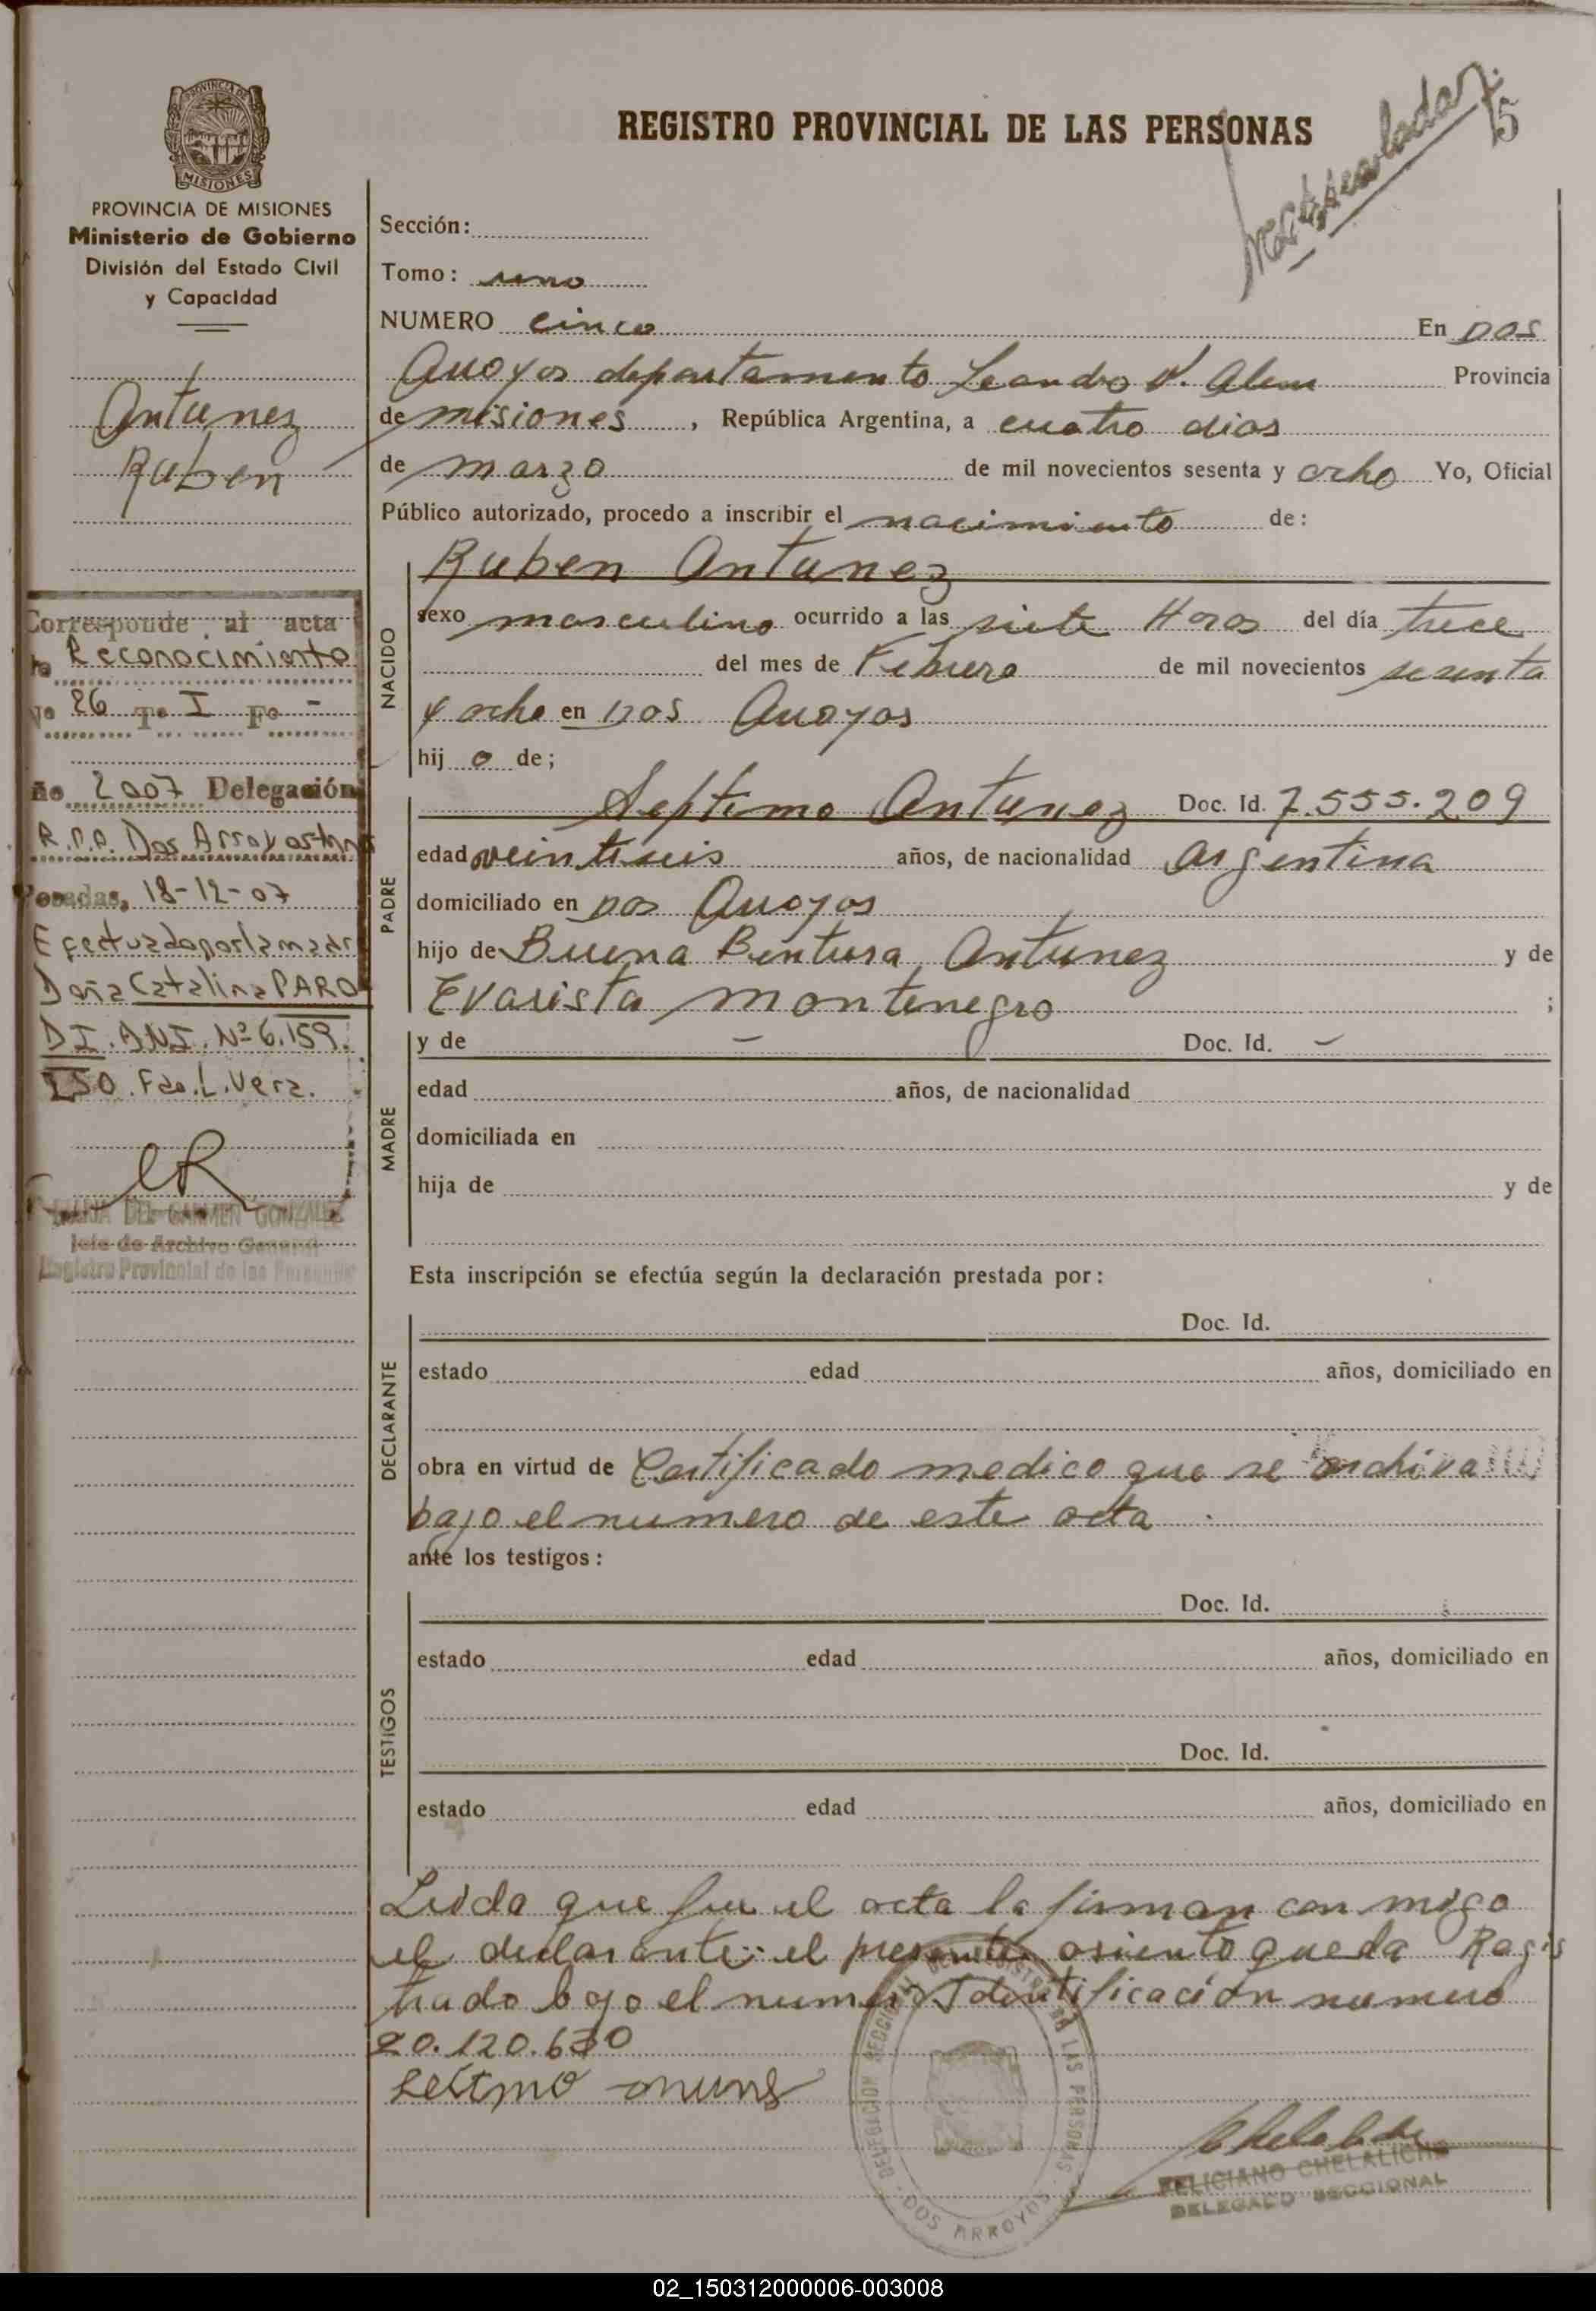 PROVINCIA DE
MISIONES
PROVINCIA DE MISIONES
Ministerio de Gobierno
División del Estado Civil
y Capacidad
Antunez
Ruben
Corresponde al acta
Reconocimiento
No 26 To I Fo -
2007 Delegación
R.P.P. Dos Arroyos
Posadas, 18-12-07
Efectuado por la madr
Doña Catalina PARO
D.I. ANI. Nº 6.159.
250. Fdo. L. Vera.
MARIA DEL CARMEN GONZALEZ
Jefe de Archivo General
Registro Provincial de las Personas
REGISTRO PROVINCIAL DE LAS PERSONAS
5
Sección:
Tomo: uno
NUMERO cinco En Dos
Arroyos departamento Leandro N. Alem Provincia
de misiones, República Argentina, a cuatro dias
de marzo de mil novecientos sesenta y ocho Yo, Oficial
Público autorizado, procedo a inscribir el nacimiento de:
NACIDO
Ruben Antunez
sexo masculino ocurrido a las siete Horas del día trece
del mes de Febrero de mil novecientos sesenta
y ocho en Dos Arroyos
hij o de;
PADRE
Septimo Antunez Doc. Id. 7.555.209
edad veintiseis años, de nacionalidad argentina
domiciliado en Dos Arroyos
hijo de Buena Bentura Antunez y de
Evarista montenegro ;
MADRE
y de - Doc. Id. -
edad años, de nacionalidad
domiciliada en
hija de y de
Esta inscripción se efectúa según la declaración prestada por:
DECLARANTE
Doc. Id.
estado edad años, domiciliado en
obra en virtud de Certificado medico que se archiva
bajo el numero de este acta.
ante los testigos:
TESTIGOS
Doc. Id.
estado edad años, domiciliado en
Doc. Id.
estado edad años, domiciliado en
Leida que fue el acta la firman con migo
el declarante: el presente asiento queda Regis
trado bajo el numero Identificación numero
20.120.630
DELEGACION SECCIONAL DEL REGISTRO DE LAS PERSONAS
DOS ARROYOS
FELICIANO CHELALICHE
DELEGADO SECCIONAL
02_150312000006-003008